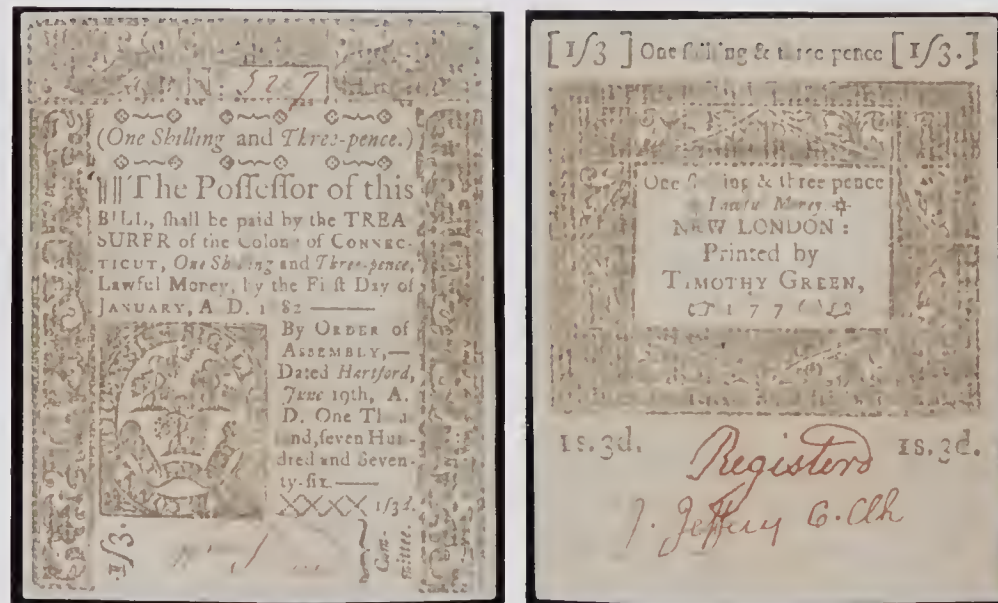 N. 5267
(One Shilling and Three-pence.)
The Poſſeſſor of this
BILL, ſhall be paid by the TREA
SURER of the Colony of CONNEC-
TICUT, One Shilling and Three-pence,
Lawful Money, by the Firſt Day of
JANUARY, A D. 1 82
By ORDER of
ASSEMBLY,—
Dated Hartford,
June 19th, A.
D. One Thou
ſand, ſeven Hun-
dred and Seven-
ty-ſix.
XXXX 1/3d.
1/3.
Com-
mittee.
[1/3 ] One ſhilling & three pence [1/3.]
One ſhilling & three pence
Lawful Money.
NEW LONDON:
Printed by
TIMOTHY GREEN,
1 7 7
1s.3d. 1s.3d.
Registerd
J. Jeffery C. Clk